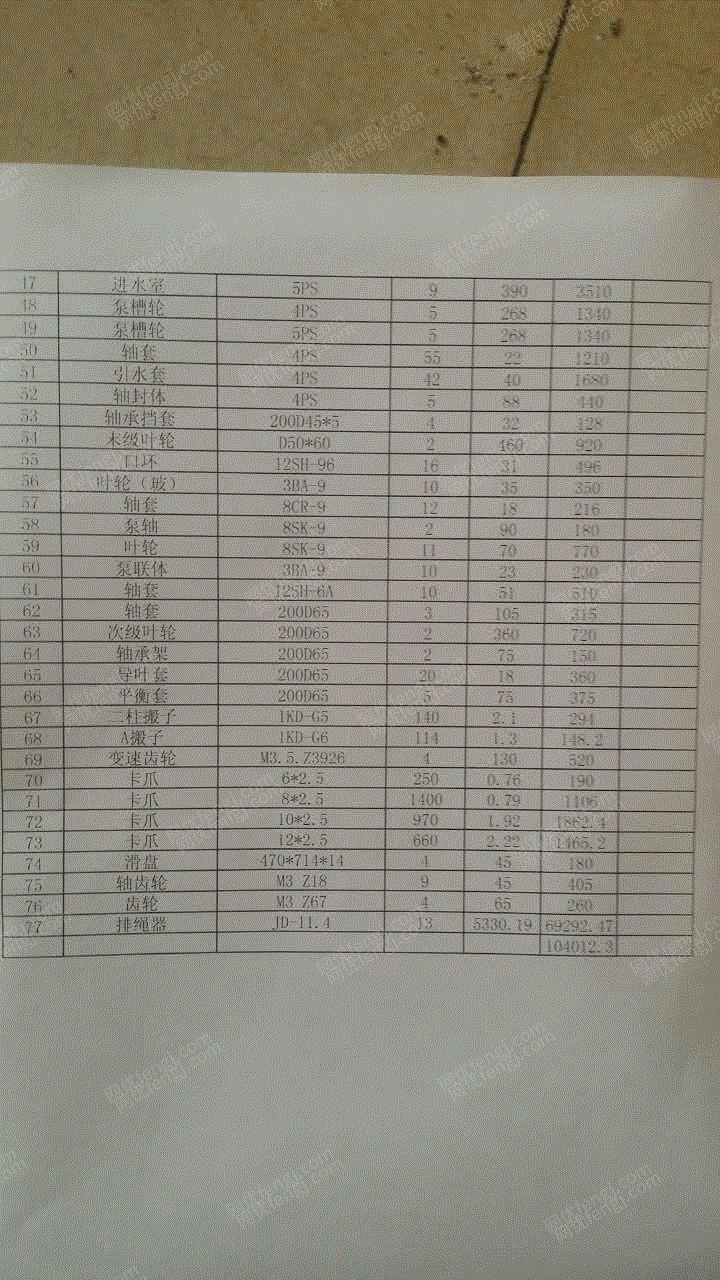 47 进水室 5PS 9 390 3510
48 泵槽轮 4PS 5 268 1340
49 泵槽轮 5PS 5 268 1340
50 轴套 4PS 55 22 1210
51 引水套 4PS 42 40 1680
52 轴封体 4PS 5 88 440
53 轴承挡套 200D45*5 4 32 128
54 末级叶轮 D50*60 2 460 920
55 口环 12SH-96 16 31 496
56 叶轮（玻） 3BA-9 10 35 350
57 轴套 8CR-9 12 18 216
58 泵轴 8SK-9 2 90 180
59 叶轮 8SK-9 11 70 770
60 泵联体 3BA-9 10 23 230
61 轴套 12SH-6A 10 51 510
62 轴套 200D65 3 105 315
63 次级叶轮 200D65 2 360 720
64 轴承架 200D65 2 75 150
65 导叶套 200D65 20 18 360
66 平衡套 200D65 5 75 375
67 二柱搬子 1KD-G5 140 2.1 294
68 A搬子 1KD-G6 114 1.3 148.2
69 变速齿轮 M3.5.Z3926 4 130 520
70 卡爪 6*2.5 250 0.76 190
71 卡爪 8*2.5 1400 0.79 1106
72 卡爪 10*2.5 970 1.92 1862.4
73 卡爪 12*2.5 660 2.22 1465.2
74 滑盘 470*714*14 4 45 180
75 轴齿轮 M3 Z18 9 45 405
76 齿轮 M3 Z67 4 65 260
77 排绳器 JD-11.4 13 5330.19 69292.47
104012.3